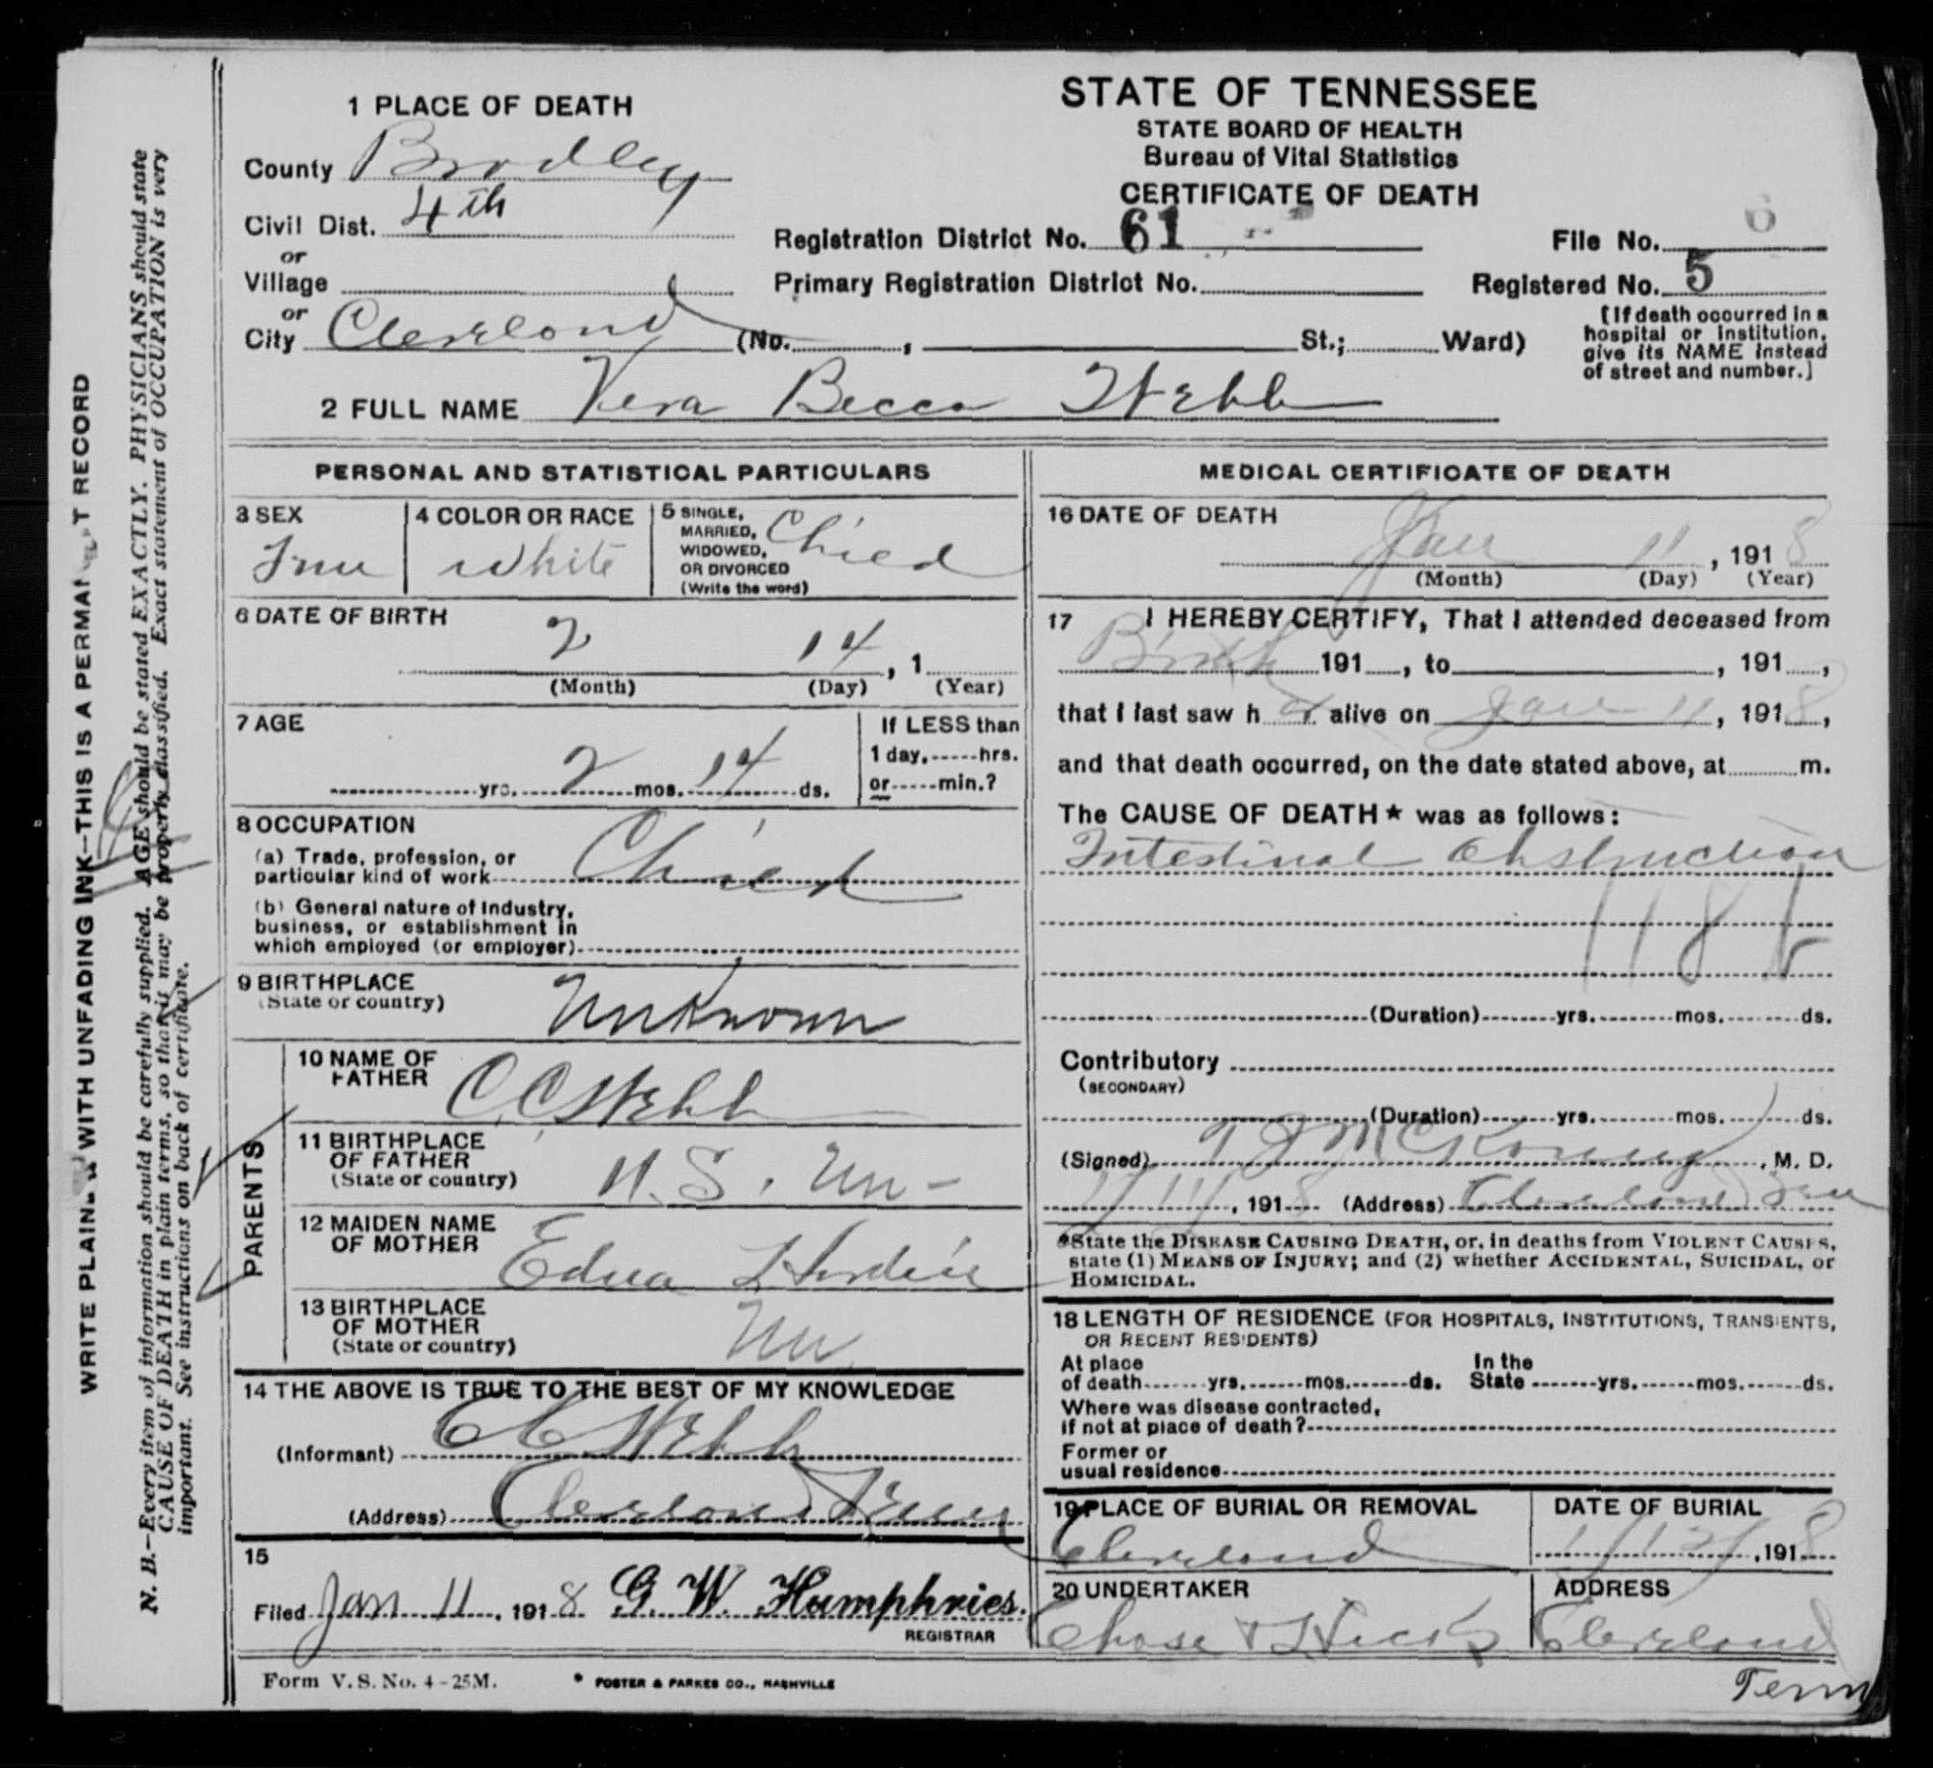 STATE OF TENNESSEE
STATE BOARD OF HEALTH
Bureau of Vital Statistics
CERTIFICATE OF DEATH
1 PLACE OF DEATH
County Bradley
Civil Dist. 4th
or
Village
or
City Cleveland (No. , St.; Ward)
Registration District No. 61
Primary Registration District No.
File No. 6
Registered No. 5
[If death occurred in a
hospital or institution,
give its NAME instead
of street and number.]
2 FULL NAME Vera Becca Webb
PERSONAL AND STATISTICAL PARTICULARS
3 SEX
4 COLOR OR RACE
White
5 SINGLE,
MARRIED,
WIDOWED,
OR DIVORCED
(Write the word)
Child
6 DATE OF BIRTH
2 14 , 1
(Month) (Day) (Year)
7 AGE
yrs. 2 mos. 14 ds.
If LESS than
1 day, hrs.
or min.?
8 OCCUPATION
(a) Trade, profession, or
particular kind of work Child
(b) General nature of Industry,
business, or establishment in
which employed (or employer)
9 BIRTHPLACE
(State or country)
Unknown
PARENTS
10 NAME OF
FATHER C.C. Webb
11 BIRTHPLACE
OF FATHER
(State or country) U.S. Un-
12 MAIDEN NAME
OF MOTHER Edna
13 BIRTHPLACE
OF MOTHER
(State or country) Un
14 THE ABOVE IS TRUE TO THE BEST OF MY KNOWLEDGE
(Informant) CC Webb
(Address) Cleveland Tenn
15
Filed Jan 11, 1918 G. W. Humphries.
REGISTRAR
Form V. S. No. 4-25M.
POSTER & PARKES CO., NASHVILLE
MEDICAL CERTIFICATE OF DEATH
16 DATE OF DEATH
Jan 11, 1918
(Month) (Day) (Year)
17 I HEREBY CERTIFY, That I attended deceased from
Birth 191 , to , 191 ,
that I last saw her alive on Jan 11, 1918,
and that death occurred, on the date stated above, at m.
The CAUSE OF DEATH* was as follows:
Intestinal Obstruction
118
(Duration) yrs. mos. ds.
Contributory
(SECONDARY)
(Duration) yrs. mos. ds.
(Signed) , M. D.
1/11, 1918 (Address) Cleveland Ten
*State the DISEASE CAUSING DEATH, or, in deaths from VIOLENT CAUSES,
state (1) MEANS OF INJURY; and (2) whether ACCIDENTAL, SUICIDAL, or
HOMICIDAL.
18 LENGTH OF RESIDENCE (FOR HOSPITALS, INSTITUTIONS, TRANSIENTS,
OR RECENT RESIDENTS)
At place
of death yrs. mos. ds.
In the
State yrs. mos. ds.
Where was disease contracted,
if not at place of death?
Former or
usual residence
19 PLACE OF BURIAL OR REMOVAL
Cleveland
DATE OF BURIAL
1/12/, 1918
20 UNDERTAKER
Chase & Hicks
ADDRESS
Cleveland
Tenn
WRITE PLAINLY WITH UNFADING INK—THIS IS A PERMANENT RECORD
N. B.—Every item of information should be carefully supplied. AGE should be stated EXACTLY. PHYSICIANS should state
CAUSE OF DEATH in plain terms, so that it may be properly classified. Exact statement of OCCUPATION is very
important. See instructions on back of certificate.